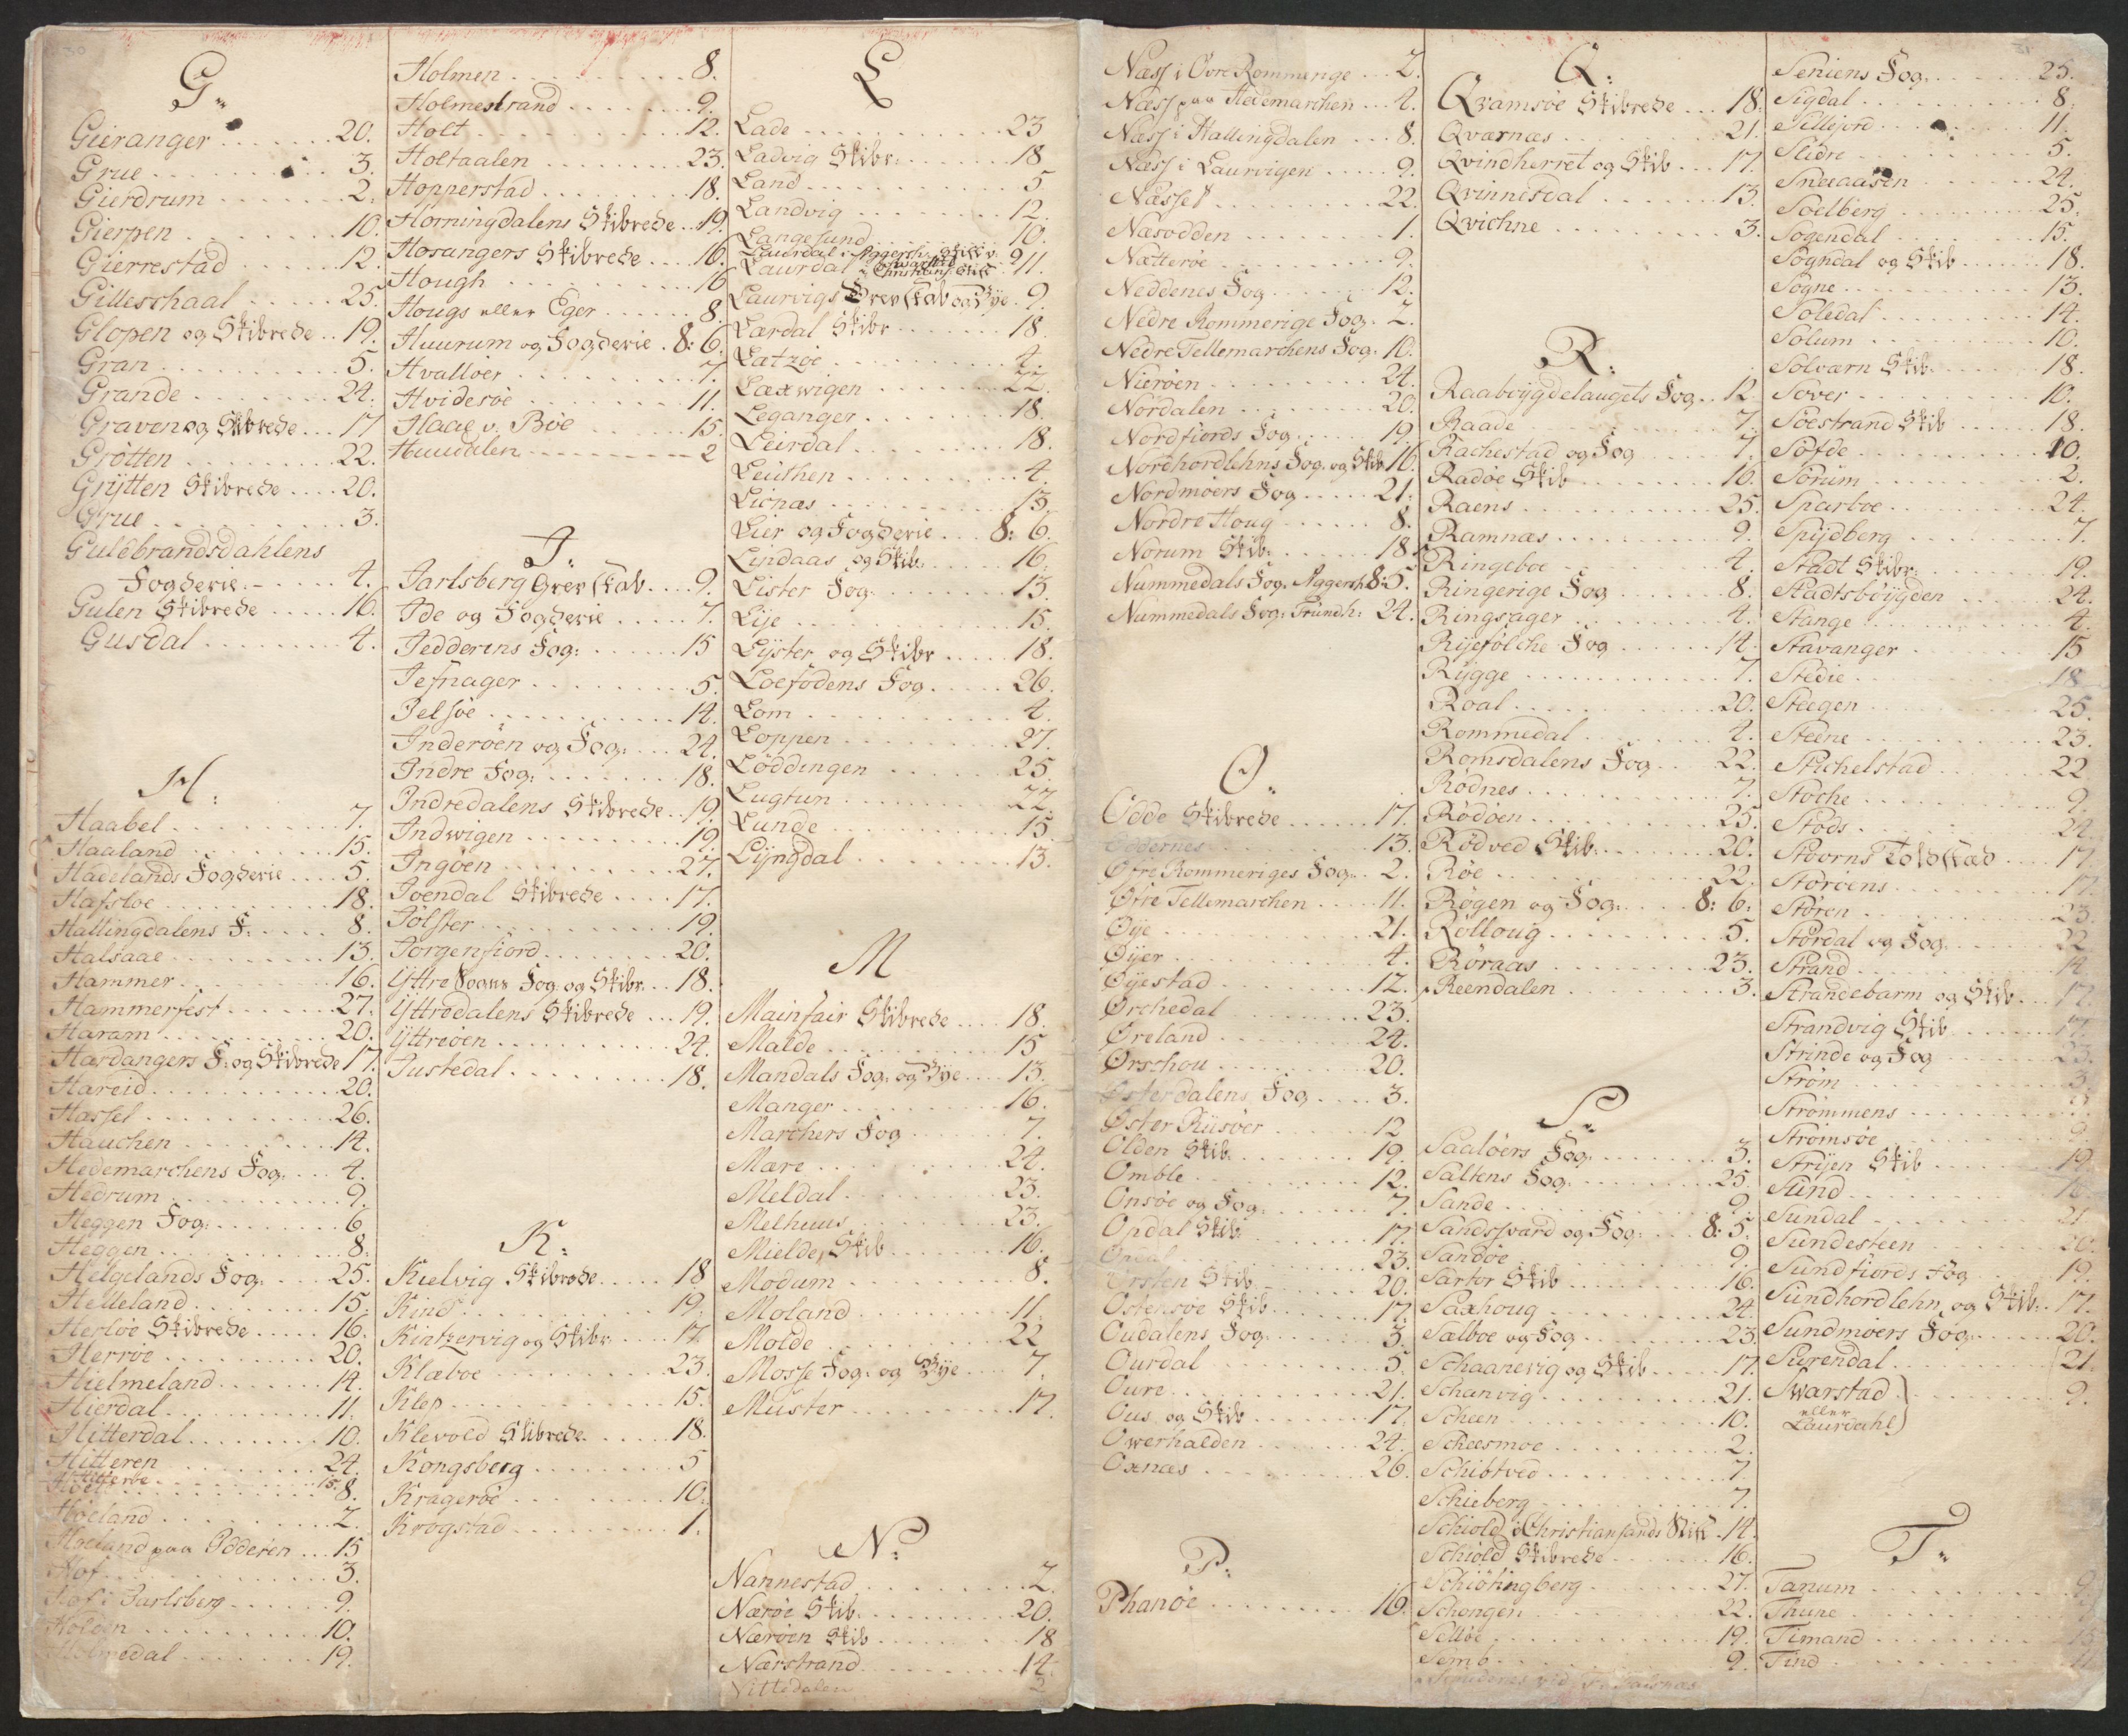 G.
Gieranger 20.
Grue 3.
Gierdrum 2.
Gierpen 10.
Gierrestad 12.
Gilleschaal 25.
Glopen og Skibrede 19.
Gran 5.
Grande 24.
Graven og Skibrede 17
Grøtten 22.
Grÿtten Skibrede 20.
Grue 3.
Guldbrandsdahlens
Fogderie 4.
Gulen Skibrede 16.
Gusdal 4.
H.
Haabel 7.
Haaland 15.
Hadelands Fogderie 5.
Hafsloe 18.
Hallingdalens F. 8.
Halsaae 13.
Hammer 16.
Hammerfest 27.
Haram 20.
Hardangers F. og Skibrede 17.
Hareid 20.
Hassel 26.
Hauchen 14.
Hedemarchens Fog. 4.
Hedrum 9.
Heggen Fog. 6
Heggen 8.
Helgelands Fog. 25.
Helleland 15.
Herløe Skibrede 16.
Herrøe 20.
Hielmeland 14.
Hierdal 11.
Hitterdal 10.
Hitteren 24.
Hitterøe 15.
8.
Høeland 2.
Høeland paa Jdderen 15
Hof 3.
Hof i Jarlsberg 9.
Holden 10.
Holmedal 19.
Holmen 8.
Holmestrand 9.
Holt 12.
Holtaalen 23.
Hopperstad 18.
Horningdalens Skibrede 19.
Hosangers Skibrede 16.
Hough 16
Hougs eller Eger 8.
Huurum og Fogderie 8: 6.
Hvalløer 7.
Hvidesøe 11.
Haae v. Bøe 15.
Huudalen 2
J.
Jarlsberg Grevskab 9.
Jde og Fogderie 7.
Jedderens Fog: 15
Jefnager 5.
Jelsøe 14.
Jnderøen og Fog: 24.
Jndre Fog: 18.
Jndredalens Skibrede 19.
Jndwigen 19.
Jngøen 27.
Joendal Skibrede 17.
Jølster 19.
Jorgenfiord 20.
Ÿttre Sogns Fog. og Skibr. 18.
Ÿttredalens Skibrede 19.
Ÿttrøen 24.
Justedal 18.
K.
Kielvig Skibrede 18
Kind 19.
Kintzervig og Skibr. 17
Klæboe 23.
Klep 15.
Klevold Skibrede 18.
Kongsberg 5
Kragerøe 10.
Krogstad 1.
L
Lade 23
Ladvig Skibr: 18
Land 5
Landvig 12.
Langesund 10.
Laurdal i Aggersh. Stift v. Swarstad 9
Laurdal i Christians. Stift 11.
Laurvigs Grevskab og Bÿe 9.
Lærdal Skibr 18.
Latzøe 4.
Laxwigen 22.
Leganger 18.
Leirdal 18.
Leuthen 4.
Licnæs 13.
Lier og Fogderie 8: 6.
Lindaas og Skib. 16.
Lister Fog. 13.
Lÿe 15.
Lÿster og Skibr 18.
Loefodens Fog. 26.
Lom 4.
Loppen 27.
Løddingen 25.
Lugtun 22.
Lunde 15
Lÿngdal 13.
M
Mainfair Skibrede 18.
Malde 15
Mandals Fog. og Bÿe 13.
Manger 16.
Marchers Fog 7.
Mære 24.
Meldal 23.
Melhuus 23.
Mielde, Skib 16.
Modum 8.
Moland 11.
Molde 22
Mosse Fog. og Bÿe 7.
Muster 17.
N.
Nannestad 2.
Nærøe Skib. 20.
Nærøen Skib 18
Nærstrand 14.
Nittedalen 2
Næss i Øvre Rommerige 2.
Næss paa Hedemarchen 4.
Næss i Hallingdalen 8.
Næss i Laurvigen 9.
Næsset 22.
Næsodden 1.
Nætterøe 9.
Neddenes Fog 12.
Nedre Rommerige Fog. 2.
Nedre Tellemarchens Fog. 10.
Nierøen 24.
Nordalen 20.
Nordfiords Fog. 19.
Nordhordlehns Fog. og Skib. 16.
Nordmøers Fog 21.
Nordre Houg 8.
Norum Skib. 18.
Nummedals Fog. Aggersh. 8: 5.
Nummedals Fog: Trundh: 24.
O.
Odde Skibrede 17.
Oddernes 13.
Øfre Rommeriges Fog. 2.
Øfre Tellemarchen 11.
Øÿe 21.
Øÿer 4.
Øÿestad 12.
Ørchedal 23.
Øreland 24.
Ørschou 20.
Østerdalens Fog 3.
Øster Riisøer 12
Olden Skib. 19.
Omble 12.
Onsøe og Fog. 7.
Opdal Skib 17.
Opdal 23.
Ørsten Skib 20.
Ostensøe Skib 17.
Oudalens Fog. 3.
Ourdal 5.
Oure 21.
Ous og Skib 17.
Owerhalden 24.
Oxnæs 26.
P.
Phanøe 16.
Q.
Qvamsøe Skibrede 18.
Qværnæs 21.
Qvindherret og Skib 17.
Qvinnesdal 13.
Qvichne 3.
R.
Raaboÿgdelaugets Fog. 12.
Raade 7.
Rachestad og Fog 7.
Radøe Skib 16.
Raens 25.
Ramnæs 9.
Ringeboe 4.
Ringerige Fog 8.
Ringsager 4.
Rÿefølche Fog 14.
Rÿgge 7.
Roal 20.
Rommedal 4.
Romsdalens Fog 22.
Rødnes 7.
Rødøen 25.
Rødved Skib. 20.
Røe 22.
Røgen og Fog. 8: 6.
Røllong 5.
Røraas 23.
Reendalen 3.
S.
Saaløers Fog. 3.
Saltens Fog. 25.
Sande 9.
Sandsværd og Fog. 8: 5.
Sandøe 9.
Sartor Skib 16.
Saxhoug 24.
Sælboe og Fog 23.
Schaanevig og Skib 17.
Schanvig 21.
Scheen 10.
Scheesmoe 2.
Schibtved 7.
Schieberg 7.
Schiold i Christiansands Stift 14.
Schiold Skibrede 16.
Schiøtingberg 27.
Schongen 22.
Selløe 19.
Semb 9.
Seniens Fog. 25.
Sigdal 8.
Sillejord 11.
Slidre 5.
Sneeaasen 24.
Soelberg 25.
Sogendal 15.
Sogndal og Skib 18.
Sogne 13.
Soledal 14.
Solum 10.
Solværn Skib 18.
Sover 10.
Søestrand Skib 18.
Søfde 10.
Sørum 2.
Sparboe 24.
Spÿdberg 7.
Stadt Skibr. 19.
Stadtsbøÿgden 24.
Stange 4.
Stavanger 15
Stedie 18
Steegen 25.
Steene 23.
Stichelstad 22
Stoche 9.
Stods 24.
Stoorns Toldsted 17.
Storøens 17.
Støren 23.
Stordal og Fog 22
Strand 14
Strandebarm og Skib 17.
Strandvig Skib 17.
Strinde og Fog 23.
Strøm 3.
Strømmens
Strømsøe 9
Strÿen Skib 19.
Sund 16.
Sundal 21
Sundesteen 20.
Sundfiords Fog 19.
Sundhordlehn, og Skib. 17.
Sundmøers Fog. 20.
Surendal 21.
Swarstad 9.
eller
Laurdahl
T.
Tanum 9
Thune 7
Timand 15
Tind 11